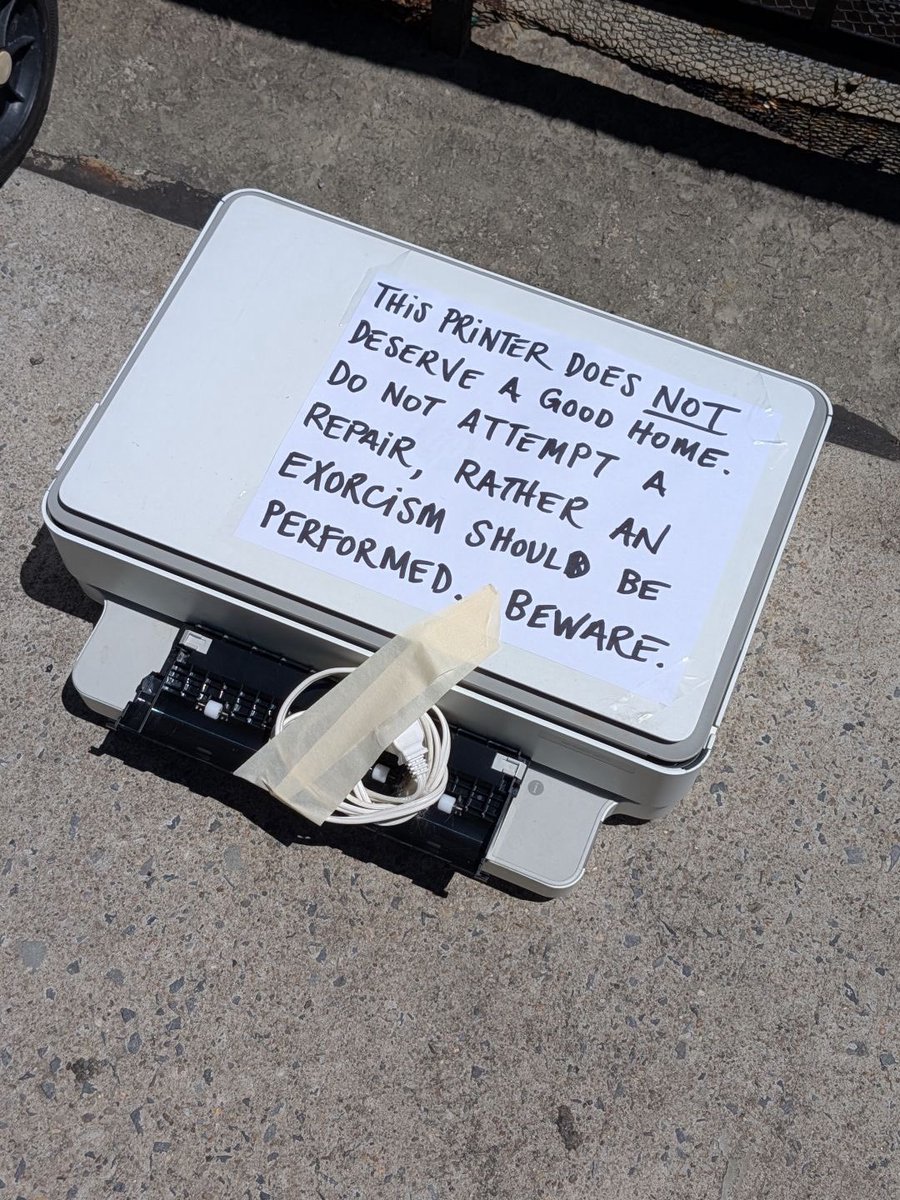 THIS PRINTER DOES NOT
DESERVE A GOOD HOME.
DO NOT ATTEMPT A
REPAIR, RATHER AN
EXORCISM SHOULD BE
PERFORMED. BEWARE.